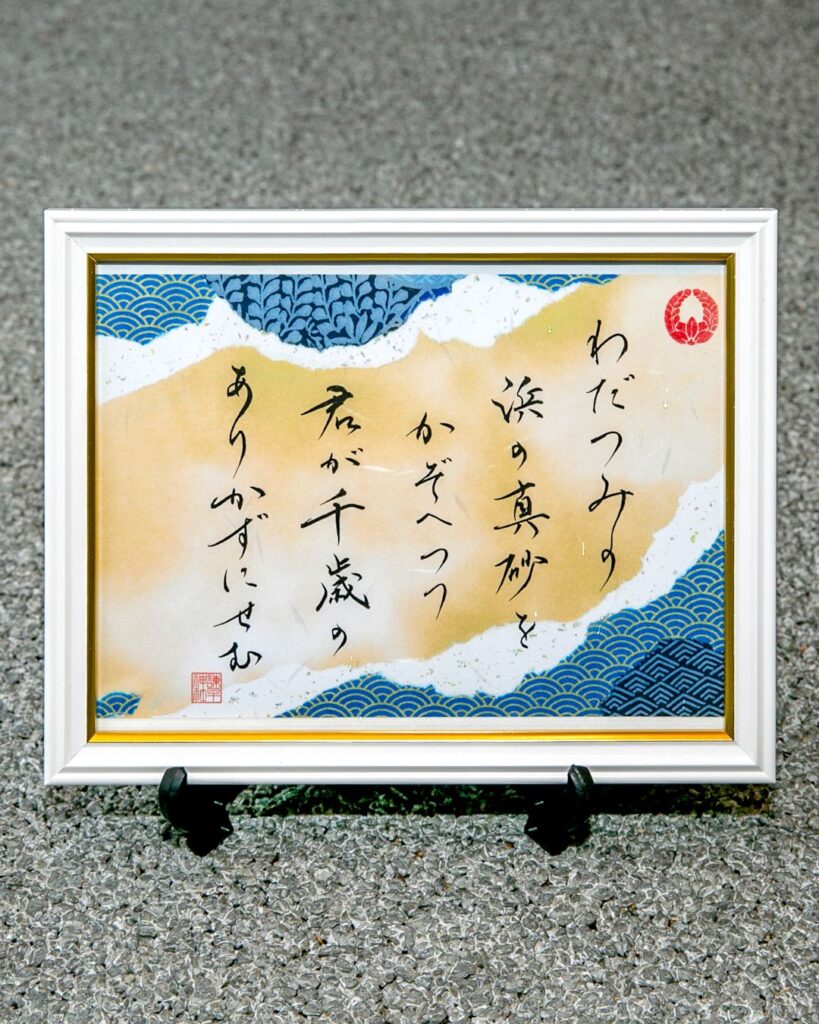 わだつみの
浜の真砂を
かぞへつつ
君が千歳の
ありかずにせむ